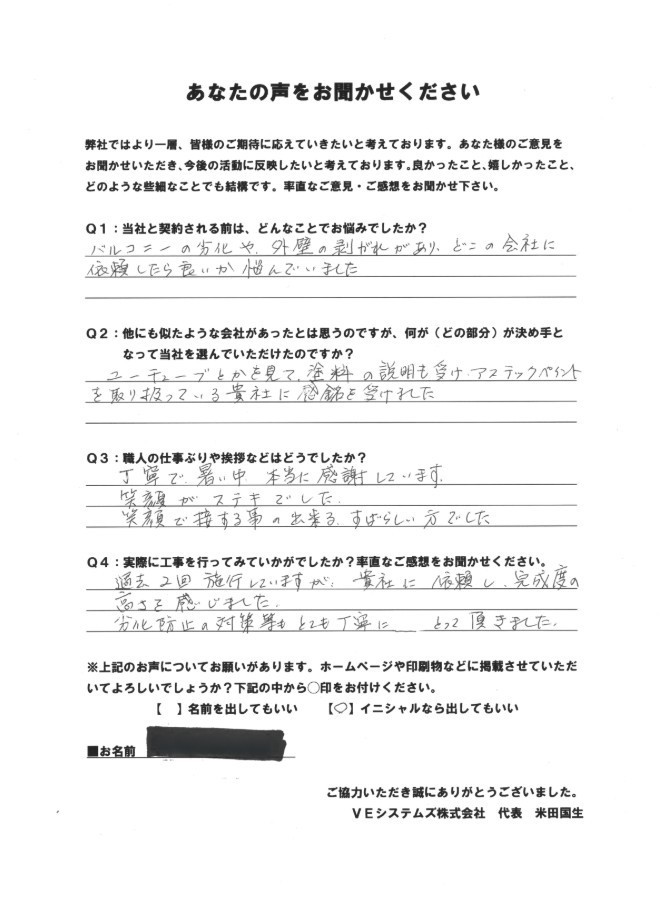 あなたの声をお聞かせください
弊社ではより一層、皆様のご期待に応えていきたいと考えております。あなた様のご意見を
お聞かせいただき、今後の活動に反映したいと考えております。良かったこと、嬉しかったこと、
どのような些細なことでも結構です。率直なご意見・ご感想をお聞かせ下さい。
Q1：当社と契約される前は、どんなことでお悩みでしたか？
バルコニーの劣化や、外壁の剥がれがあり、どこの会社に
依頼したら良いか悩んでいました
Q2：他にも似たような会社があったとは思うのですが、何が（どの部分）が決め手と
なって当社を選んでいただけたのですか？
ユーチューブとかを見て、塗料の説明も受け、アステックペイント
を取り扱っている貴社に感銘を受けれた
Q3：職人の仕事ぶりや挨拶などはどうでしたか？
丁寧で、暑い中 本当に感謝しています。
笑顔がステキでした。
笑顔で接する事の出来る、すばらしい方でした
Q4：実際に工事を行ってみていかがでしたか？率直なご感想をお聞かせください。
過去2回 施行していますが、貴社に依頼し、完成度の
高さを感じました。
劣化防止の対策等もとても丁寧に とって頂きました。
※上記のお声についてお願いがあります。ホームページや印刷物などに掲載させていただ
いてよろしいでしょうか？下記の中から○印をお付けください。
【　】名前を出してもいい　【○】イニシャルなら出してもいい
■お名前
ご協力いただき誠にありがとうございました。
VEシステムズ株式会社　代表　米田国生